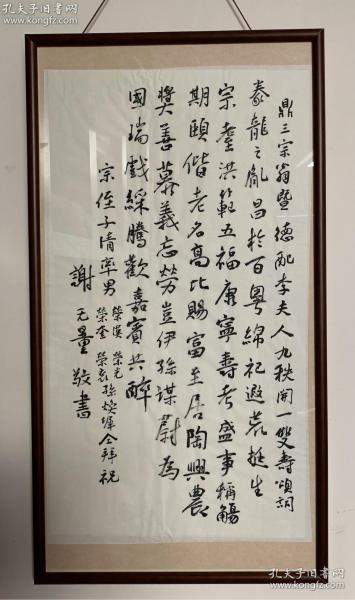 孔夫子旧书网
鼎三宗翁暨德配李夫人九秩開一雙壽頌詞
豢龍之胤昌於百粵綿祀遐荒挺生
宗耋洪範五福康寧壽考盛事稱觴
期頤偕老名高比賜富至居陶興農
獎善慕義忘勞豈伊孫謀蔚為
國瑞戲綵騰歡嘉賓共醉
宗侄子清率男
榮漢 榮光
榮奎 榮 孫 仝拜祝
謝无量敬書
孔夫子旧书网